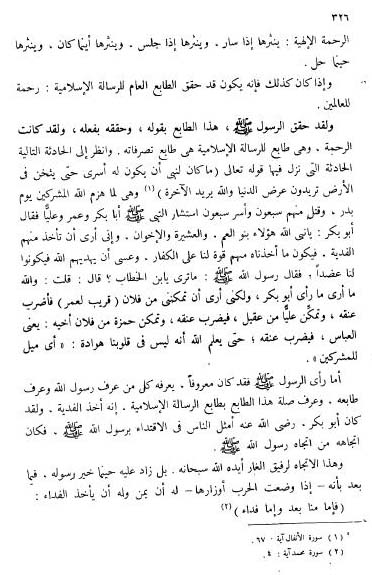 ٣٢٦
الرحمة الإلهية : ينثرها إذا سار . وينثرها إذا جلس . وينثرها أينما كان . وينثرها
حيثما حل .
وإذا كان كذلك فإنه يكون قد حقق الطابع العام للرسالة الإسلامية : رحمة
للعالمين .
ولقد حقق الرسول ﷺ ، هذا الطابع بقوله ، وحققه بفعله ، ولقد كانت
الرحمة . وهى طابع للرسالة الإسلامية هى طابع تصرفاته . وانظر إلى الحادثة التالية
الحادثة التى نزل فيها قوله تعالى (ماكان لنبى أن يكون له أسرى حتى يثخن فى
الأرض تريدون عرض الدنيا والله يريد الآخرة ) (١) وهى لما هزم الله المشركين يوم
بدر ، وقتل منهم سبعون وأسر سبعون استشار النبى ﷺ أبا بكر وعمر وعليًّا فقال
أبو بكر : يانبى الله هؤلاء بنو العم . والعشيرة والإخوان . وإنى أرى أن تأخذ منهم
الفدية . فيكون ما أخذناه منهم قوة لنا على الكفار . وعسى أن يهديهم الله فيكونوا
لنا عضداً ؛ فقال رسول الله ﷺ : ماترى يابن الخطاب ؟ قال : قلت : والله
ما أرى ما رأى أبو بكر ، ولكنى أرى أن تمكننى من فلان ( قريب لعمر) فأضرب
عنقه ، وتمكن عليًّا من عقيل ، فيضرب عنقه ، وتمكن حمزة من فلان أخيه : يعنى
العباس ، فيضرب عنقه ؛ حتى يعلم الله أنه ليس فى قلوبنا هوادة : « أى ميل
للمشركين » .
أما رأى الرسول ﷺ فقد كان معروفاً . يعرفه كل من عرف رسول الله وعرف
طابعه . وعرف صلة هذا الطابع بطابع الرسالة الإسلامية . إنه أخذ الفدية . ولقد
كان أبو بكر . رضى الله عنه أمثل الناس فى الاقتداء برسول الله ﷺ . فكان
اتجاهه من اتجاه رسول الله ﷺ .
وهذا الاتجاه لرفيق الغار أيده الله سبحانه . بل زاد عليه حينما خير رسوله . فيما
بعد بأنه – إذا وضعت الحرب أوزارها – له أن يمن وله أن يأخذ الفداء :
( فإما منا بعد وإما فداء ) (٢)
( ١ ) سورة الأنفال آية ٦٧ .
( ٢ ) سورة محمد آية : ٤ .